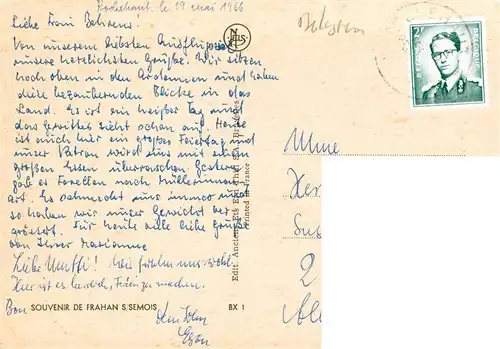 Rochehaut, le 19 mai 1966
Liebe Frau Behrens!
Von unserem liebsten Ausflugsort
unsere herzlichsten Grüße. Wir sitzen
hoch oben in den Ardennen und haben
die bezaubernden Blicke in das
Land. Es ist ein heißer Tag und
das Gewitter zieht schon auf. Heute
ist auch hier ein großer Feiertag und
unser Patron wird uns mit einem
großen Essen überraschen. Gestern
gab es Forellen nach Müllerinnen
art. Es schmeckt uns immer und
so haben wir unser Gewicht ver
grössert. Für heute viele liebe Grüße
von Ihrer Marianne
Liebe Mutti! Wir fühlen uns wohl.
Hier ist es herrlich, Ferien zu machen.
Dein Sohn
Egon
SOUVENIR DE FRAHAN S/SEMOIS
BX 1
NELS
Edit. Anciens Etab. Ern. Thill, S.A., Bruxelles
Printed in France
2F
BELGIE-BELGIQUE
Mme
2